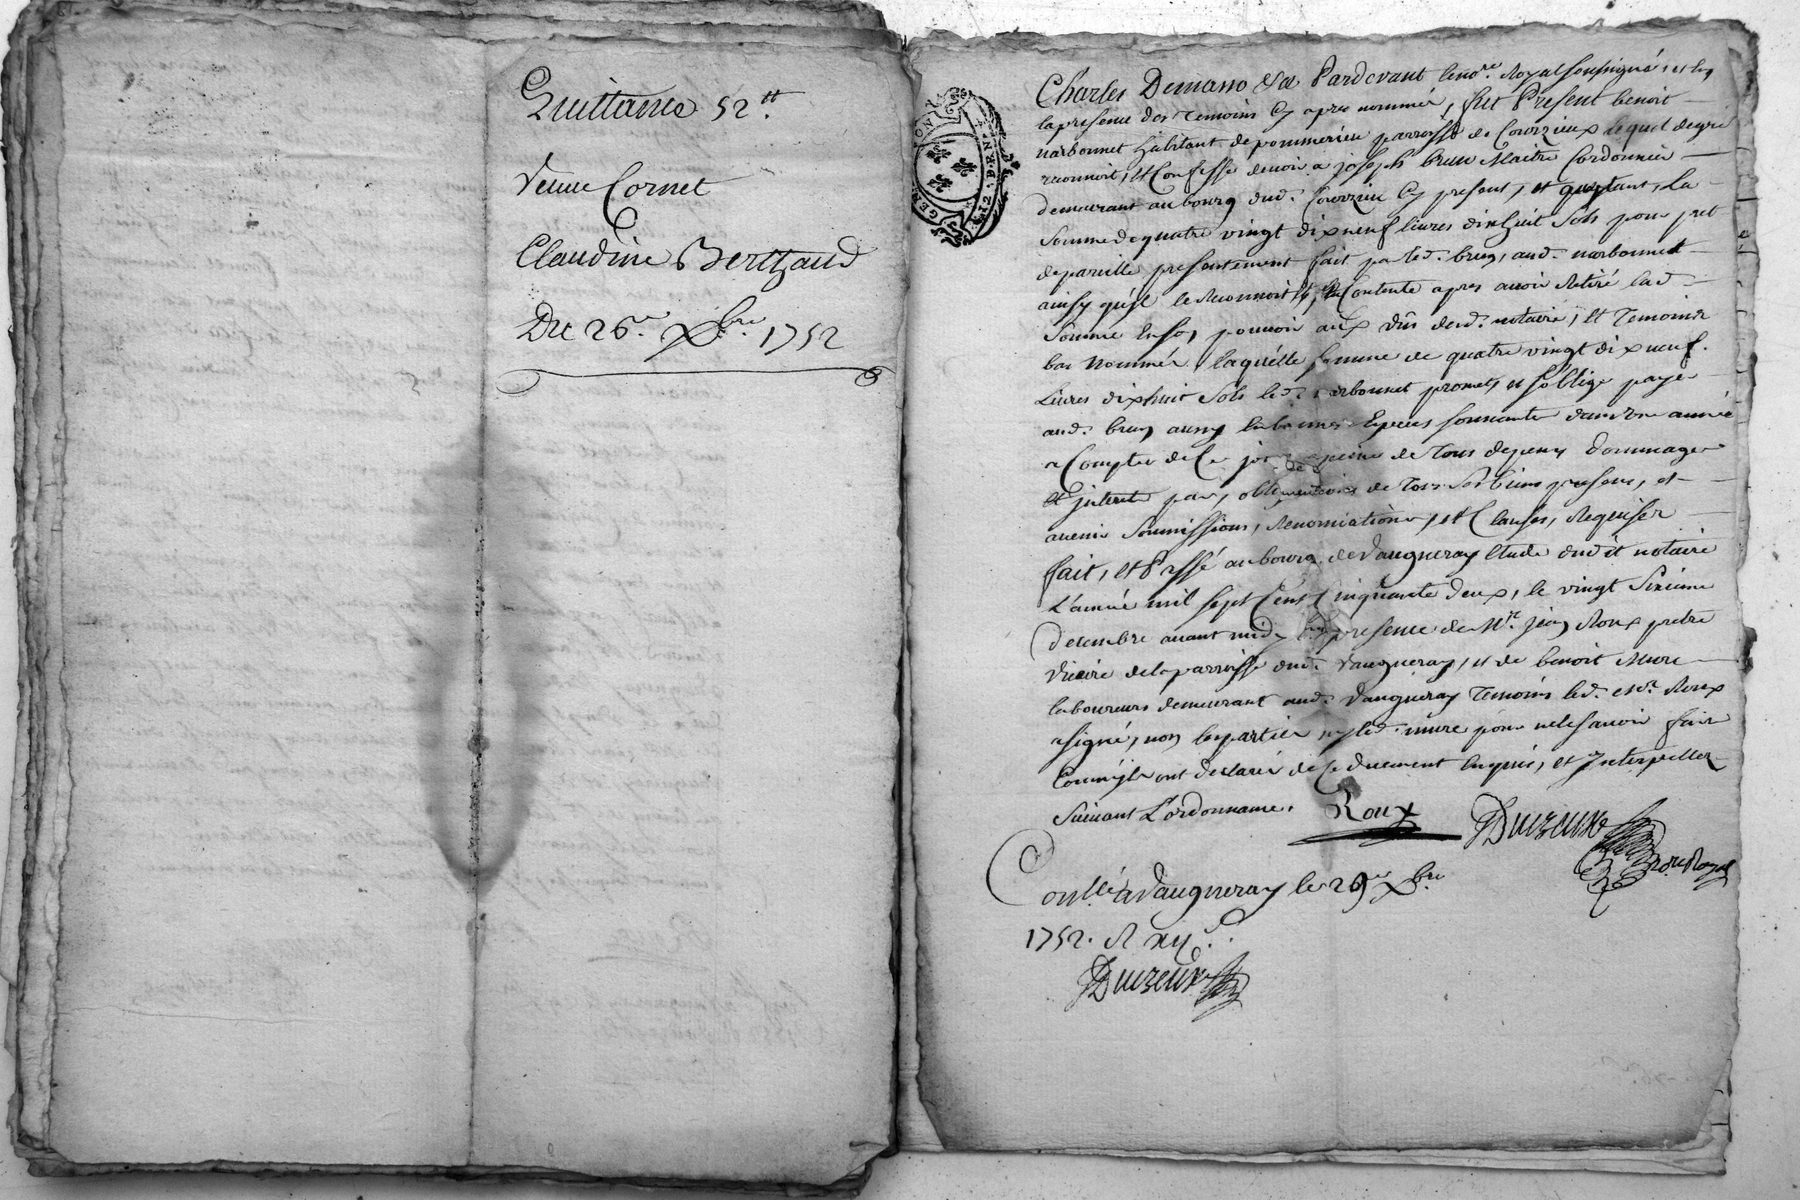 Quittance 52 tt.
Veuve Cornet
Claudine Berthaud
Du 26.e Xbre. 1752
GEN LION 12 DEN
Charles Demano &a Pardevant le no.re Royal soussigné, et en
la presence des Temoins cy apres nommés, fut Present benoit
narbonnet habitant de pommerieu parroisse de Courzieux lequel de gré
reconnoit, et Confesse devoir a joseph brun Maitre Cordonnier
demeurant au bourg dud. Courzieu cy present, et acceptant, la
somme de quatre vingt dix neuf livres dix huit sols pour pret
de pareille presentement fait par led. brun, aud. narbonnet
ainsy qu'il le reconnoit Contente apres avoir retiré lad
somme pouvoir aux vûs dud. notaire, et Temoins
bas nommés, laquelle somme de quatre vingt dix neuf
Livres dix huit sols led. narbonnet promet, et s'oblige payer
aud. brun aussy en bonnes Especes sonnante dans une année
a Compter de Ce jour a peine de tous depens dommages
et interets par, obligations de tous ses biens presens, et
avenir soumissions, renonciations, et Clauses, requises
fait, et Passé au bourg de Vaugneray Etude dudit notaire
L'année mil sept Cens Cinquante deux, le vingt sixieme
decembre avant midy En presence de M.re jean Roux pretre
vicaire de la parroisse dud. Vaugneray, et de benoit Mure
laboureurs demeurant aud. Vaugneray Temoins led. Roux
a signé, non les parties ny led. mure pour ne le savoir faire
Comm'ils ont declaré de Ce duement enquis, et Interpellez
suivant L'ordonnance.
Roux
Duizeux
no.re Royal
Con.llé a Vaugneray le 29.e Xbre.
1752. R xij s.
Duizeux